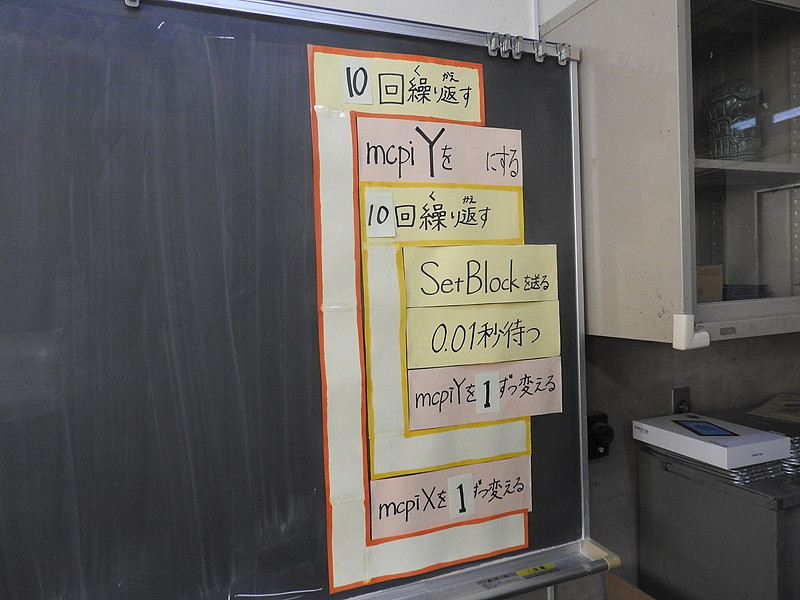 10回繰り返す
く かえ
mcpiYを にする
10回繰り返す
く かえ
SetBlockを送る
0.01秒待つ
mcpiYを1ずつ変える
mcpiXを1ずつ変える